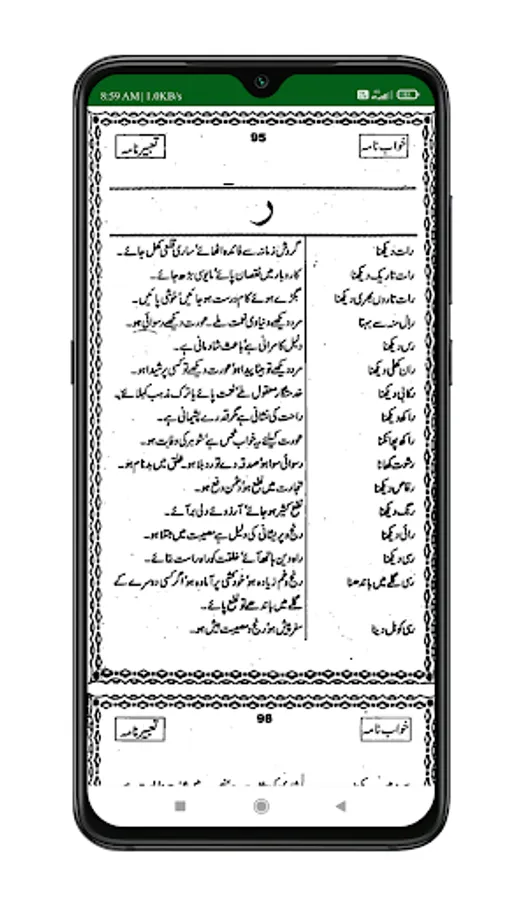 8:59 AM | 1.0KB/s
95
خواب نامہ
تعبیر نامہ
ر
رات دیکھنا گردش زمانہ سے فائدہ اٹھائے ساری قلعی کھل جائے۔
رات تاریک دیکھنا کاروبار میں نقصان پائے مایوسی بڑھ جائے۔
رات تاروں بھری دیکھنا بگڑے ہوئے کام درست ہو جائیں خوشی پائیں۔
رال منہ سے بہنا مرد دیکھے دنیاوی نعمت ملے۔ عورت دیکھے رسوائی ہو۔
رس دیکھنا دلیل کامرانی ہے باعث شادمانی ہے۔
ران کھلی دیکھنا مرد دیکھے تو بیٹا پیدا ہو عورت دیکھے تو کسی پر شیدا ہو۔
رکابی دیکھنا خدمتگار معقول ملے نعمت پائے یا ترک مذہب کہلائے۔
راکھ دیکھنا راحت کی نشانی ہے مگر قدرے پشیمانی ہے۔
راکھ پھانکنا عورت کیلئے یہ خواب نحس ہے شوہر کی وفات ہو۔
رشوت کھانا رسوائی سوا ہو صدقہ دے تو رد بلا ہو۔ خلق میں بدنام ہو۔
رقاص دیکھنا تجارت میں نفع ہو دشمن دفع ہو۔
رنگ دیکھنا نفع کثیر ہو جائے آرزوئے دلی بر آئے۔
رائی دیکھنا رنج و پریشانی کی دلیل ہے مصیبت میں مبتلا ہو۔
رسی دیکھنا راہ دین ہاتھ آئے خلقت کو راہ راست بتائے۔
رسی گلے میں باندھنا رنج و غم زیادہ ہو خودکشی پر آمادہ ہو اگر کسی دوسرے کے
گلے میں باندھے تو نفع پائے۔
رسی کو بل دینا سفر پیش ہو رنج و مصیبت بیش ہو۔
96
خواب نامہ
تعبیر نامہ